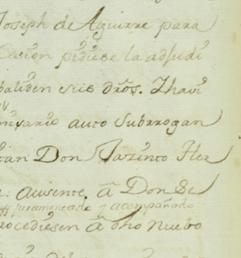 Joseph de Aguirre para
cacion pidiese la adjudi
validen sus dros. Thavi
misario auto Subrogan
Don Jazinto Her
ausente, â Don Se
juramentado y acompañado
rocediesen â dho nuevo